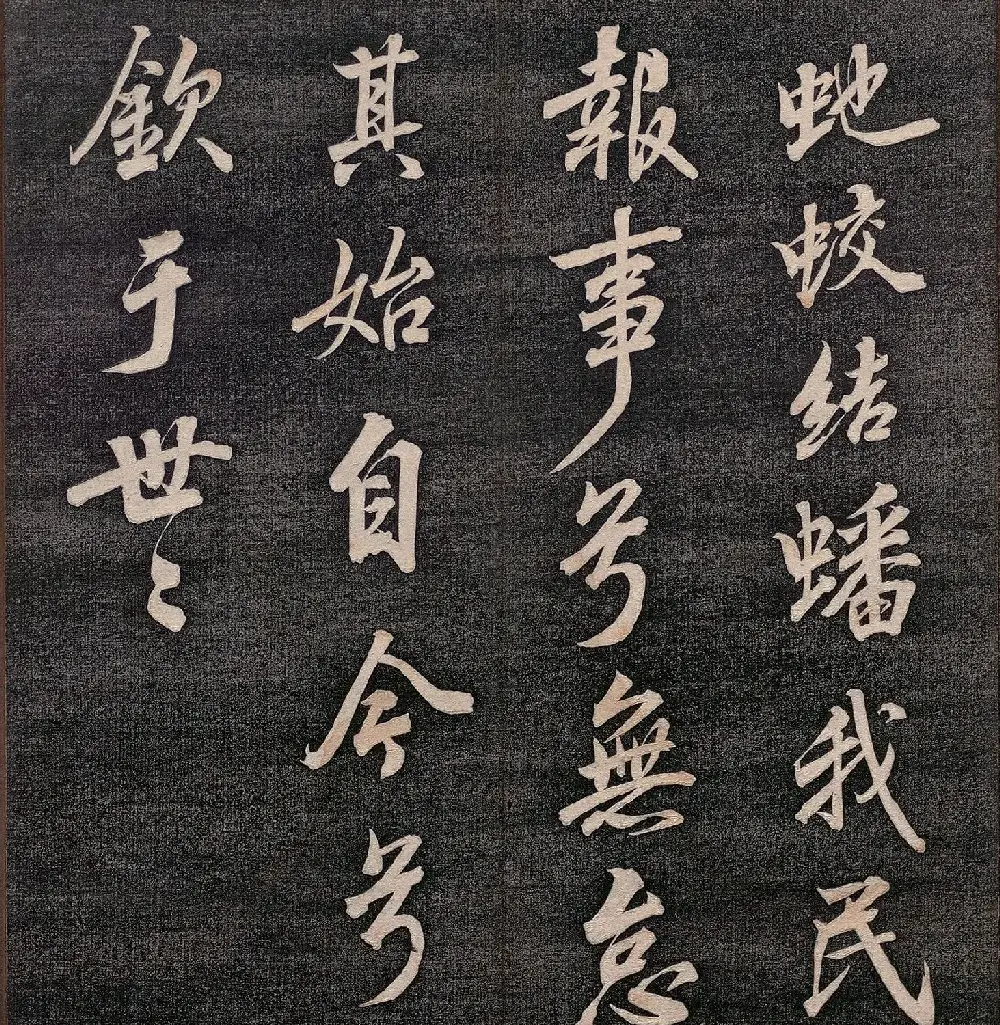 虵蛟結蟠我民
報事兮無怠
其始自今兮
欽于世〻